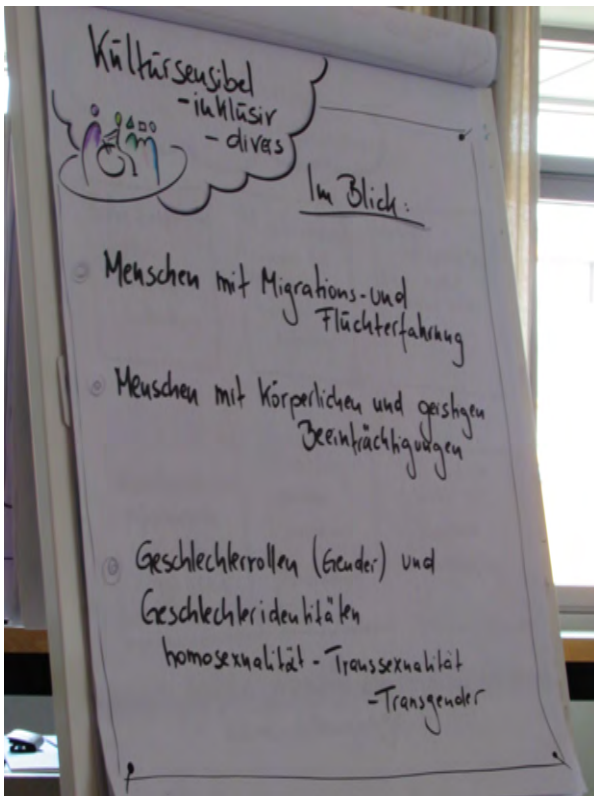 Kultursensibel
- inklusiv
- divers
Im Blick:
Menschen mit Migrations- und
Fluchterfahrung
Menschen mit körperlichen und geistigen
Beeinträchtigungen
Geschlechterrollen (Gender) und
Geschlechteridentitäten
homosexualität - Transsexualität
- Transgender